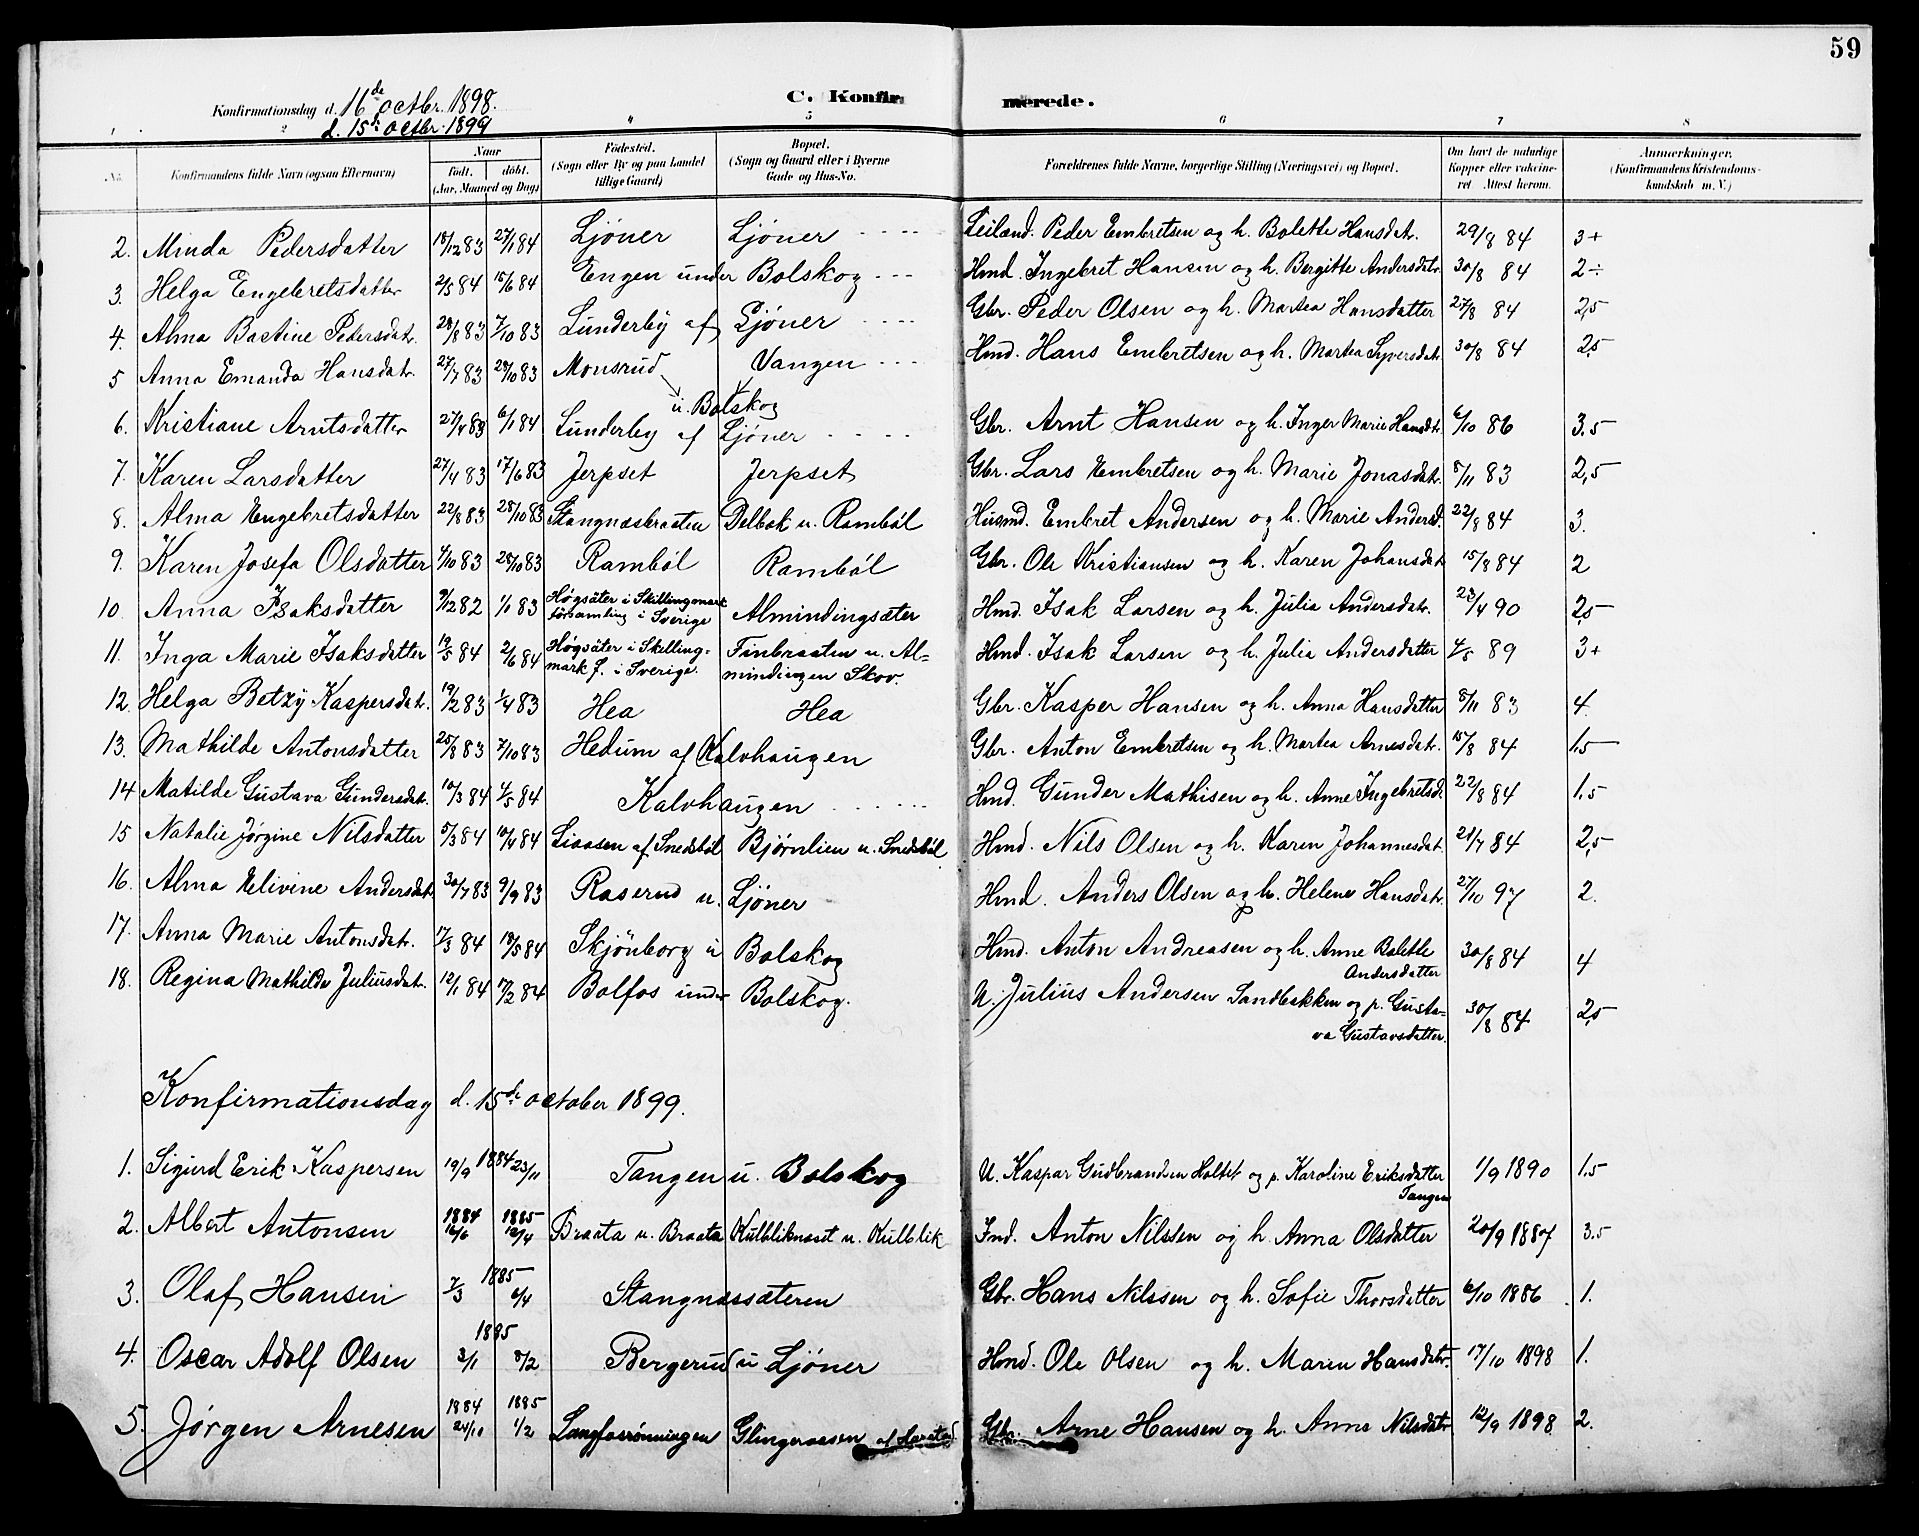 59
Konfirmationsdag d. 16de octbr. 1898.
d. 15de octbr. 1899
C. Konfirmerede.
1 2 4 5 6 7 8
No. Konfirmandens fulde Navn (ogsaa Efternavn) Naar født. døbt. (Aar, Maaned og Dag) Fødested. (Sogn eller By og paa Landet tillige Gaard) Bopæl. (Sogn og Gaard eller i Byerne Gade og Hus-No. Forældrenes fulde Navne, borgerlige Stilling (Næringsvei) og Bopæl. Om havt de naturlige Kopper eller vakcineret Attest herom. Anmærkninger. (Konfirmandens Kristendomskundskab m. V.)
2. Minda Pedersdatter 18/12 83 27/1 84 Ljöner Ljöner Leilænd. Peder Embretsen og h. Bolette Hansdat. 29/8 84 3+
3. Helga Engebretsdatter 2/5 84 15/6 84 Engen under Bolskog Hmd. Ingebret Hansen og h. Bergitte Andersdatr. 30/8 84 2÷
4. Alma Bastine Pedersdatr. 28/8 83 7/10 83 Lunderby af Ljöner Gbr. Peder Olsen og h. Martea Hansdatter 27/8 84 2,5
5 Anna Emanda Hansdatr. 27/7 83 28/10 83 Monsrud Vangen Hmd. Hans Embretsen og h. Martea Syversdatr 30/8 84 2,5
u. Bolskog
6. Kristiane Arntsdatter 27/4 83 6/1 84 Lunderby af Ljöner Gbr. Arnt Hansen og h. Inger Marie Hansdtr 6/10 86 3.5
7. Karen Larsdatter 27/4 83 17/6 83 Jerpset Jerpset Gbr. Lars Embretsen og h. Marie Jonasdatr. 8/11 83 2,5
8. Alma Engebretsdatter 22/8 83 28/10 83 Stangnæsbraaten Delbak u. Ramböl Husmd. Embret Andersen og h. Marie Andersd. 22/8 84 3.
9. Karen Josefa Olsdatter 4/10 83 28/10 83 Ramböl Ramböl Gbr. Ole Kristiansen og h. Karen Johansdat 15/8 84 2
10. Anna Isaksdatter 9/12 82 1/1 83 Högsäter i Skillingmark församling i Sverige Almindingsæter Hmd. Isak Larsen og h. Julia Andersdatr. 23/4 90 2,5
11. Inga Marie Isaksdatter 13/5 84 2/6 84 Högsäter i Skillingmark f. i Sverige. Finbraaten u. Almindingen Skov. Hmd. Isak Larsen og h. Julia Andersdatter 4/5 89 3+
12. Helga Betzy Kaspersdatr. 19/2 83 1/4 83 Hea Hea Gbr. Kasper Hansen og h. Anna Hansdatter 8/11 83 4.
13. Mathilde Antonsdatter 25/8 83 7/10 83 Hedum af Kalvhaugen Gbr. Anton Embretsen og h. Martea Arnesdatr. 15/8 84 1.5
14 Matilde Gustava Gundersdat. 10/3 84 4/5 84 Kalvhaugen Hmd. Gunder Mathisen og h. Anne Ingebretsd. 22/8 84 1.5
15 Natalie Jørgine Nilsdatter 5/3 84 10/4 84 Liaasen af Snedsböl Bjørnlien u. Snedsböl Hmd. Nils Olsen og h. Karen Johannesdat. 21/7 84 2,5
16. Alma Elivine Andersdatr. 30/7 83 9/9 83 Raserud u. Ljöner Hmd. Anders Olsen og h. Helene Hansdatr. 27/10 97 2.
17. Anna Marie Antonsdatr. 17/3 84 18/5 84 Skjönborg u Bolskog Hmd. Anton Andreasen og h. Anne Bolette Andersdatter 30/8 84 4
18. Regina Mathilde Juliusdatr. 12/1 84 17/2 84 Bolfos under Bolskog. U. Julius Andersen Sandbakken og p. Gustava Gustavsdatter. 30/8 84 2,5
Konfirmationsdag d. 15de october 1899.
1. Sigurd Erik Kaspersen 19/9 1884 23/11 Tangen u. Bolskog U. Kaspar Gudbrandsen Holtet og p. Karoline Eriksdatter Tangen 1/9 1890 1.5
2. Albert Antonsen 1884 16/6 1885 12/4 Braata u. Braata Kulbliknæset u. Kulblik Ind. Anton Nilssen og h. Anna Olsdatter 20/9 1887 3.5
3. Olaf Hansen 7/3 1885 6/4 Stangnæssæteren Gbr. Hans Nilssen og h. Sofie Thorsdatter 6/10 1886 1.
4. Oscar Adolf Olsen 3/1 1885 8/2 Bergerud u Ljöner Hmd. Ole Olsen og h. Maren Hansdatr. 17/10 1898 1.
5. Jørgen Arnesen 1884 24/11 1885 1/2 Langfosrönningen Glingeraasen af Harstad Gbr. Arne Hansen og h. Anne Nilsdatr 12/9 1898 2.